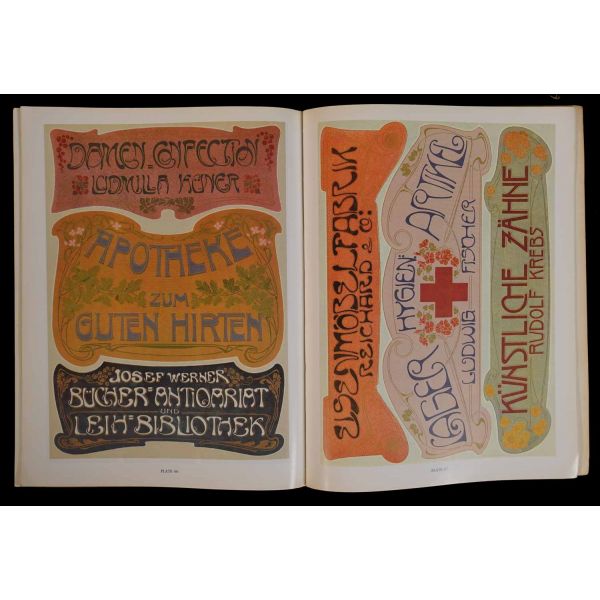 DAMEN=CONFECTION
LUDMILLA KEINER
APOTHEKE
ZUM
GUTEN HIRTEN
JOSEF WERNER
BÜCHER=ANTIQARIAT
UND
LEIH=BIBLIOTHEK
EISENMÖBELFABRIK
REICHARD & CO:
LAGER HYGIEN: ARTIKEL
LUDWIG FISCHER
KÜNSTLICHE ZÄHNE
RUDOLF KREBS
PLATE
PLATE